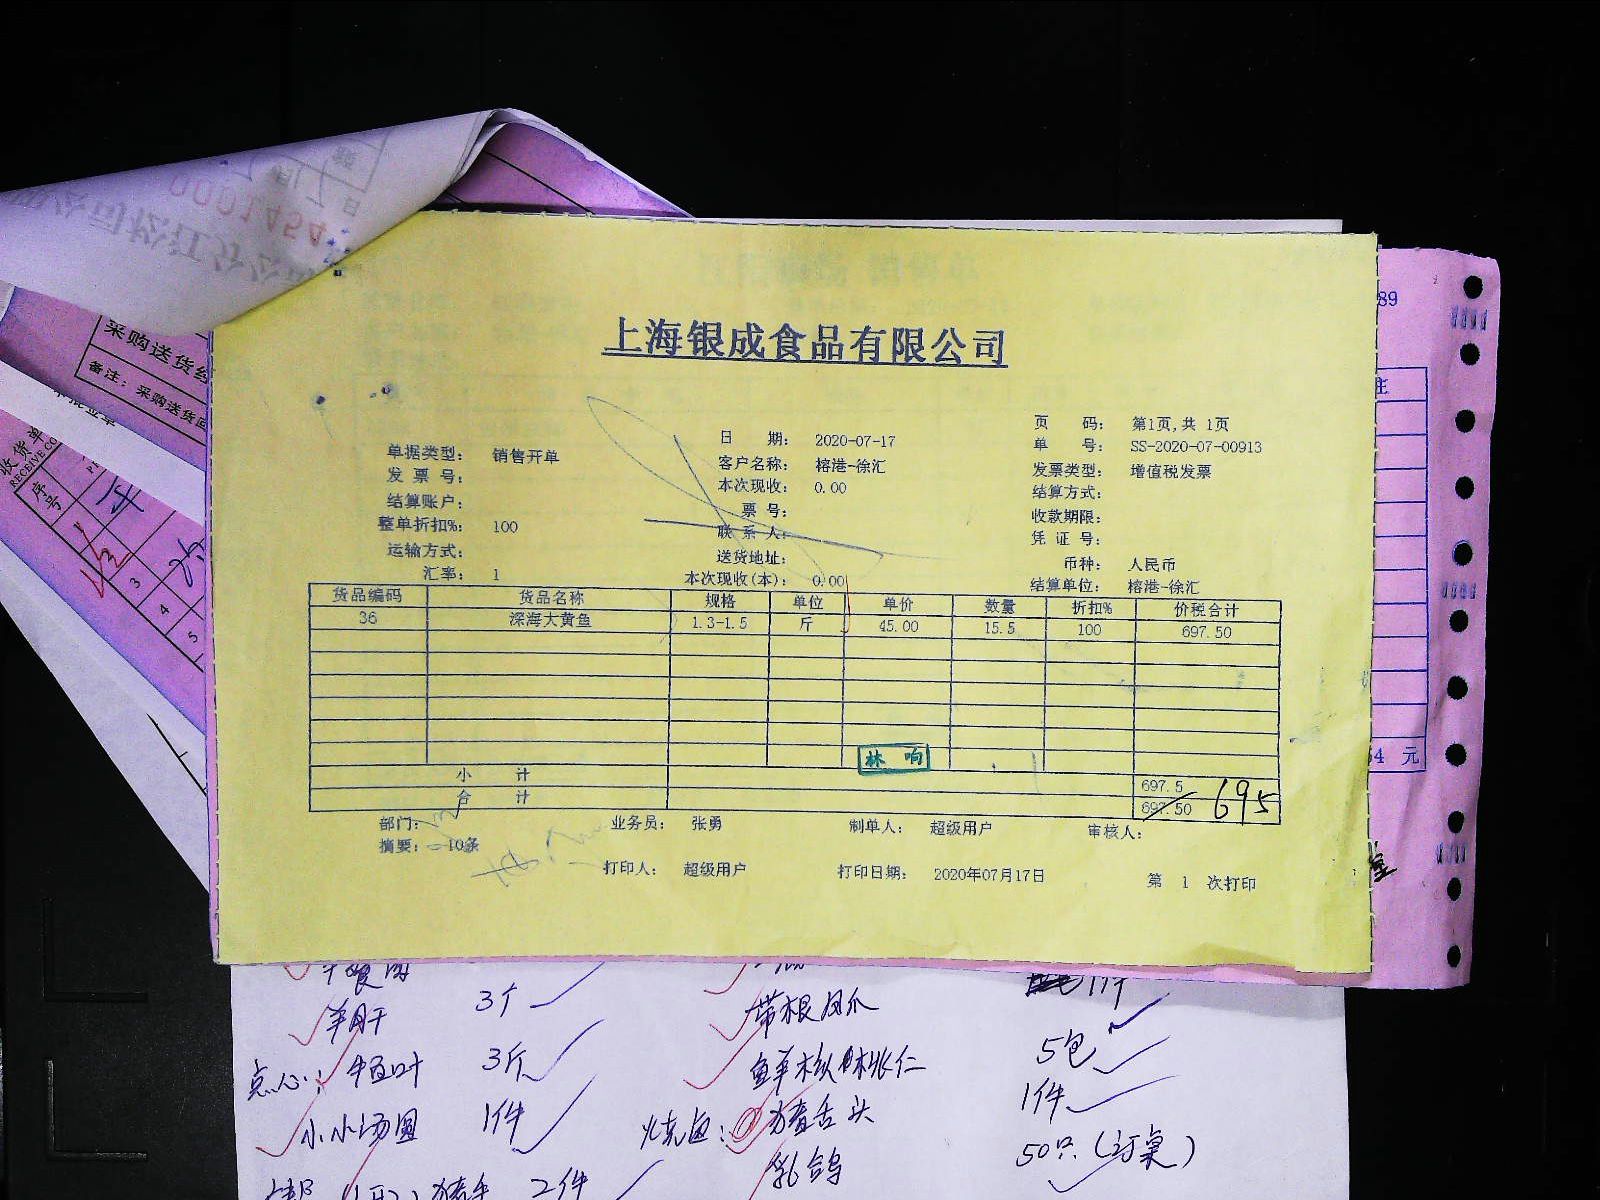 0001454
采购送货
备注：采购送货回
收货单
RECEIVE CO
序号
3
4
5
89
注
4 元
上海银成食品有限公司
页 码： 第1页,共 1页
日 期： 2020-07-17
单 号： SS-2020-07-00913
单据类型： 销售开单
客户名称： 榕港-徐汇
发票类型： 增值税发票
发 票 号：
本次现收： 0.00
结算方式：
结算账户：
票 号：
收款期限：
整单折扣%： 100
联 系 人：
凭 证 号：
运输方式：
送货地址：
币种： 人民币
汇率： 1
本次现收(本)： 0.00
结算单位： 榕港-徐汇
货品编码 货品名称 规格 单位 单价 数量 折扣% 价税合计
36 深海大黄鱼 1.3-1.5 斤 45.00 15.5 100 697.50
林 响
小 计 697.5
合 计 697.50 695
部门： 业务员： 张勇 制单人： 超级用户 审核人：
摘要： 10条
打印人： 超级用户 打印日期： 2020年07月17日 第 1 次打印
羊肚 3斤 带根凤爪
5包
点心： 3斤
1件
小小汤圆 1件 烧卤： 猪舌头
50只（订桌）
2件 乳鸽